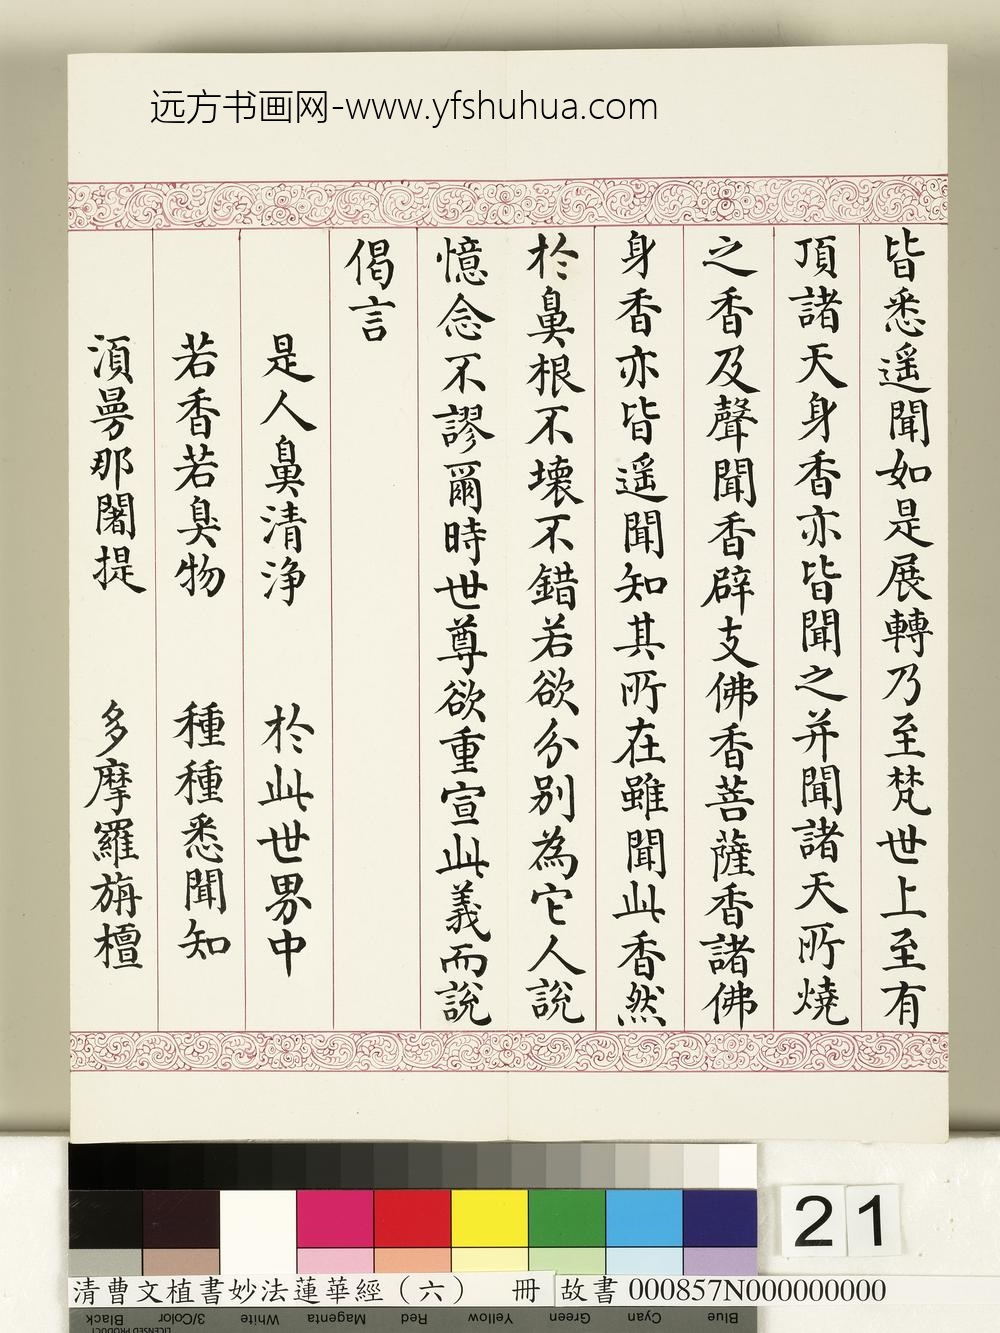 远方书画网-www.yfshuhua.com
皆悉遥聞如是展轉乃至梵世上至有
頂諸天身香亦皆聞之并聞諸天所燒
之香及聲聞香辟支佛香菩薩香諸佛
身香亦皆遥聞知其所在雖聞此香然
於鼻根不壞不錯若欲分别為它人說
憶念不謬爾時世尊欲重宣此義而說
偈言
是人鼻清浄 於此世界中
若香若臭物 種種悉聞知
湏曼那闍提 多摩羅旃檀
21
清曹文植書妙法蓮華經（六） 冊 故書 000857N000000000
Blue
Cyan
Green
Yellow
Red
Magenta
White
3/Color
Black
LICENSED PRODUCT